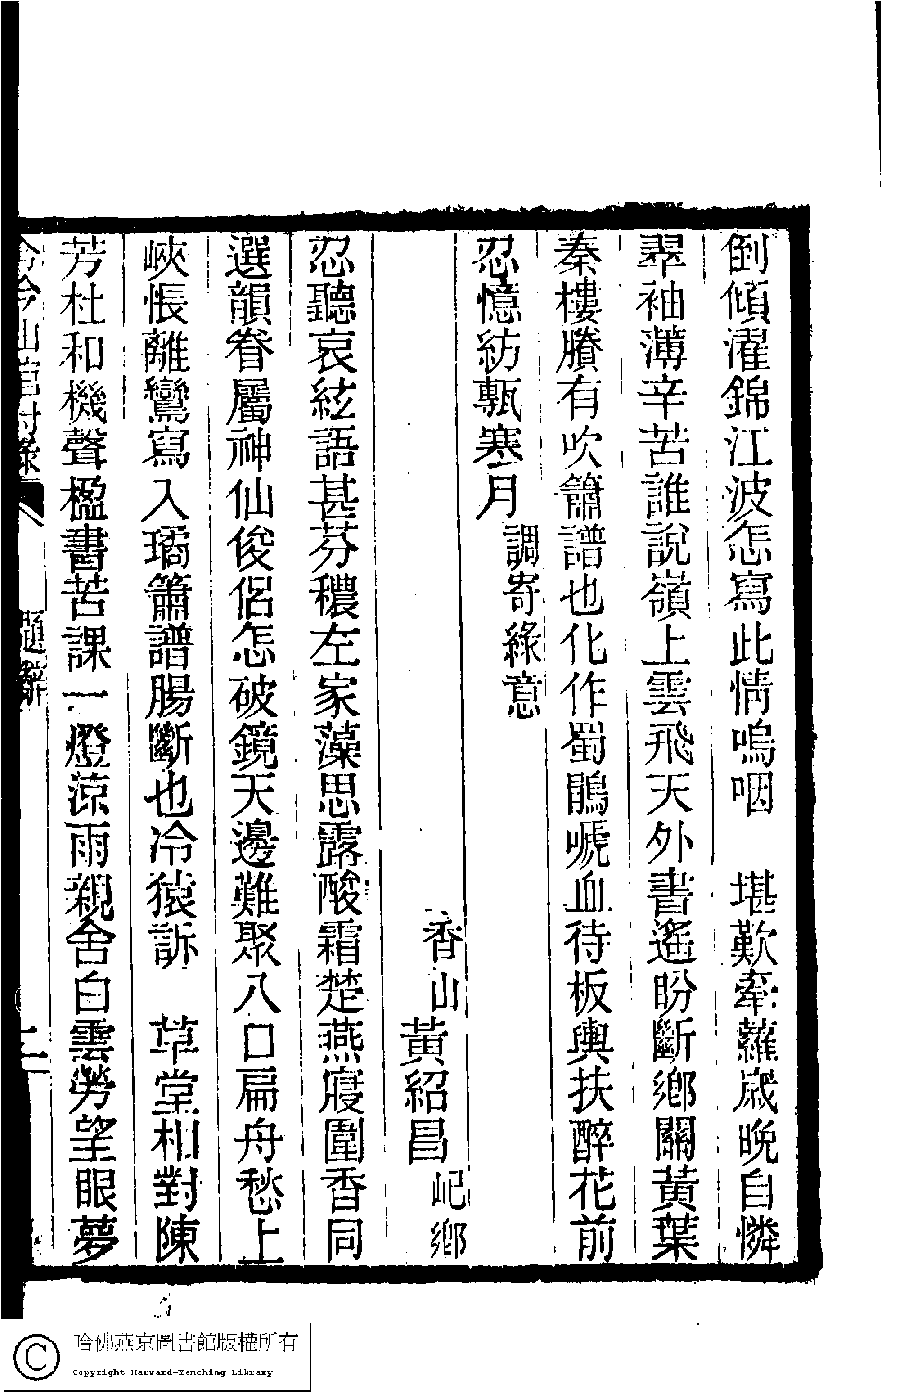 倒傾濯錦江波怎寫此情嗚咽　堪歎牽蘿歲晚自憐
翠袖薄辛苦誰說嶺上雲飛天外書遙盼斷鄉關黃葉
秦樓賸有吹簫譜也化作蜀鵑嗁血待板輿扶醉花前
忍憶紡甎寒月　調寄綠意
香山黃紹昌　屺鄉
忍聽哀絃語甚芬穠左家藻思露酸霜楚燕寢圍香同
選韻眷屬神仙俊侶怎破鏡天邊難聚八口扁舟愁上
峽悵離鸞寫入璚簫譜腸斷也冷猿訴　草堂相對陳
芳杜和機聲楹書苦課一燈涼雨親舍白雲勞望眼夢
題辭
二
哈佛燕京圖書館版權所有
Copyright Harvard-Yenching Library